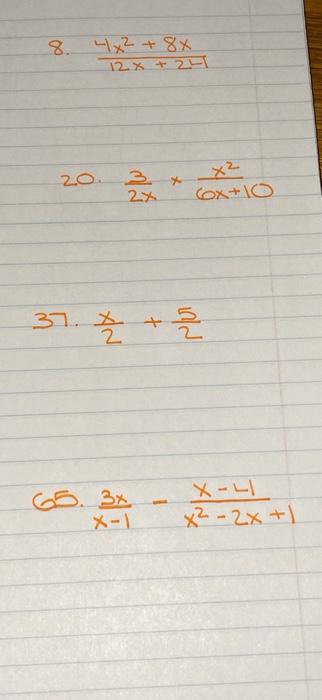 8. 4x² + 8x
12x + 24
20. 3 × x²
2x 6x+10
37. x + 5
2 2
65. 3x - x-4
x-1 x²-2x+1